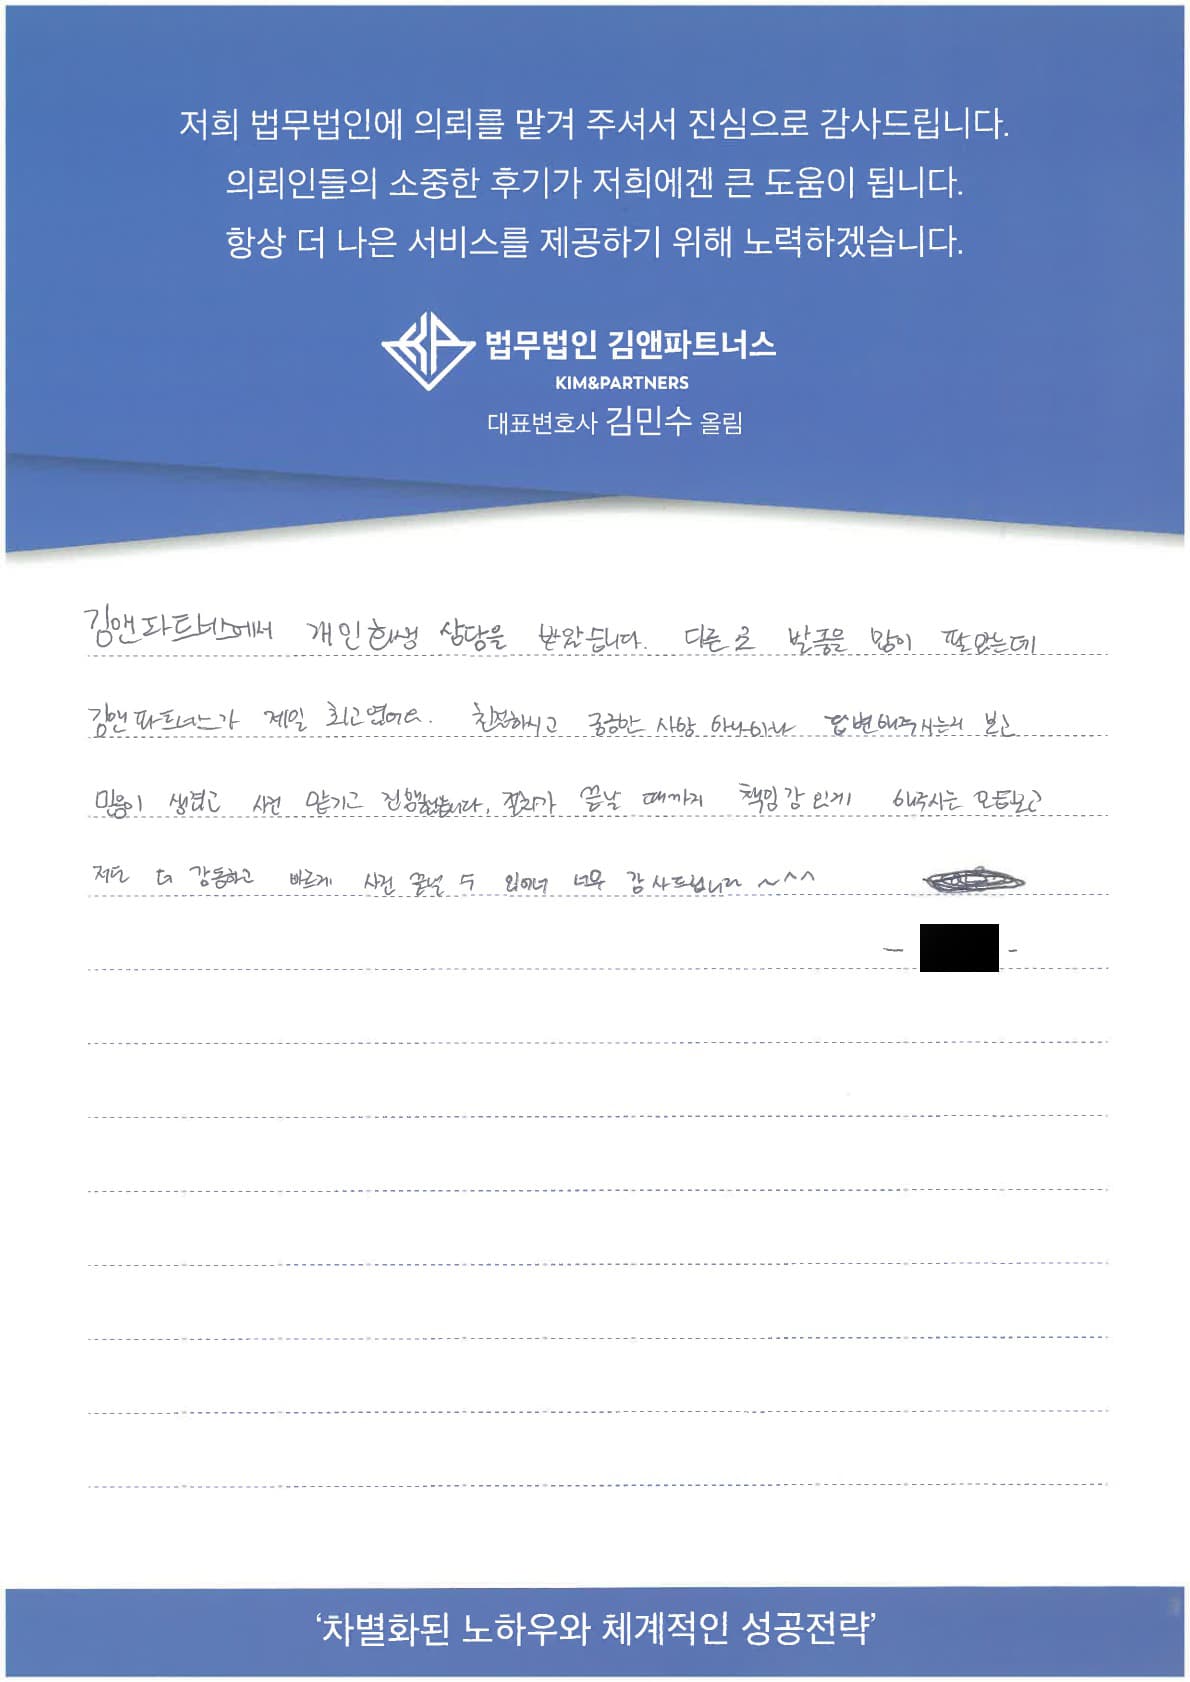 저희 법무법인에 의뢰를 맡겨 주셔서 진심으로 감사드립니다.
의뢰인들의 소중한 후기가 저희에겐 큰 도움이 됩니다.
항상 더 나은 서비스를 제공하기 위해 노력하겠습니다.
법무법인 김앤파트너스
KIM&PARTNERS
대표변호사 김민수 올림
김앤파트너스에서 개인회생 상담을 받았습니다. 다른 곳 발품을 많이 팔았는데
김앤파트너스가 제일 최고였어요. 친절하시고 궁금한 사항 하나하나 답변해주시는거 보고
믿음이 생겼고 사건 맡기고 진행했습니다. 절차가 끝날 때까지 책임감 있게 해주시는 모습보고
저도 더 감동하고 빠르게 사건 끝낼 수 있어서 너무 감사드립니다 ~^^
- -
‘차별화된 노하우와 체계적인 성공전략’